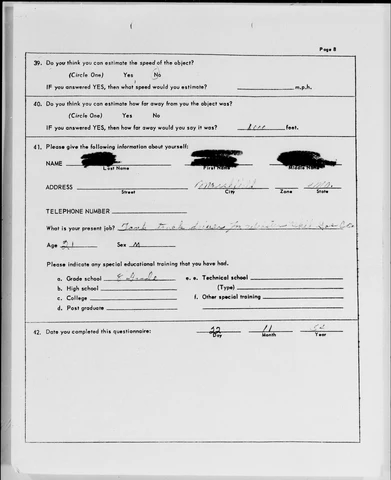 Page 8
39. Do you think you can estimate the speed of the object?
(Circle One) Yes No
IF you answered YES, then what speed would you estimate? m.p.h.
40. Do you think you can estimate how far away from you the object was?
(Circle One) Yes No
IF you answered YES, then how far away would you say it was? feet.
41. Please give the following information about yourself:
NAME
Last Name First Name Middle Name
ADDRESS
Street City Zone State
TELEPHONE NUMBER
What is your present job? Tank truck driver
Age 21 Sex M
Please indicate any special educational training that you have had.
a. Grade school 8 Grade e. e. Technical school
b. High school (Type)
c. College f. Other special training
d. Post graduate
42. Date you completed this questionnaire: 22 11
Day Month Year